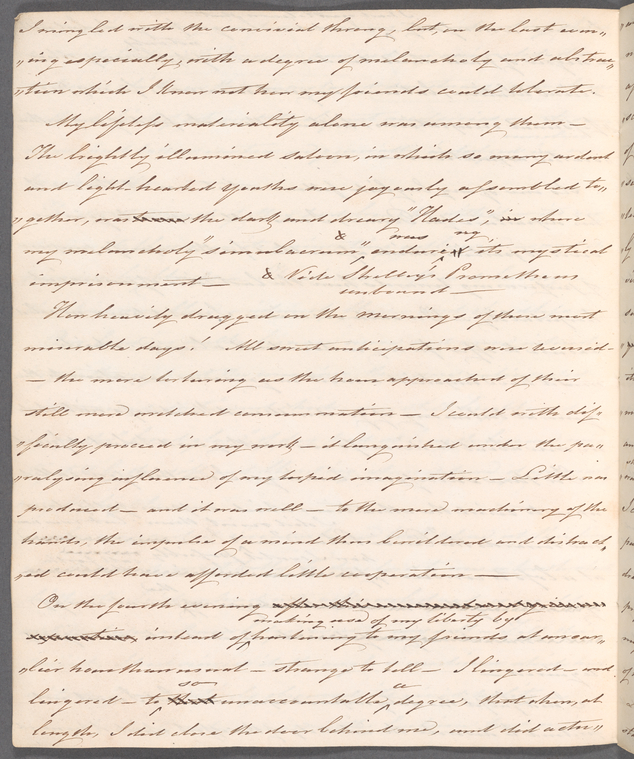 I mingled with the convivial throng, but, on the last even„
„ing especially, with a degree of melancholy and abstrac„
„tion which I know not how my friends could tolerate.
My lifeless materiality alone was among them —
The brightly illumined saloon, in which so many ardent
and light hearted youths were joyously assembled to„
„gether, was the dark and dreary "Hades", in where
& was ng
my melancholy "simulacrum" endure its mystical
imprisonment — & Vide Shelley's Prometheus
unbound —
How heavily dragged on the mornings of these most
miserable days! All sweet anticipations were reversed —
— the more torturing as the hour approached of their
still more wretched consummation — I could with dif„
„ficulty proceed in my work — it languished under the pa„
„ralysing influence of my torpid imagination — Little was
produced — and it was well — to the mere machinery of the
hands, the impulse of a mind thus bewildered and distract„
„ed could have afforded little cooperation —
On the fourth evening
making use of my liberty by
instead of hastening to my friends at an ear„
„lier hour than usual — strange to tell — I lingered — and
so a
lingered — to that unaccountable degree, that when, at
length, I did close the door behind me, and did actu„